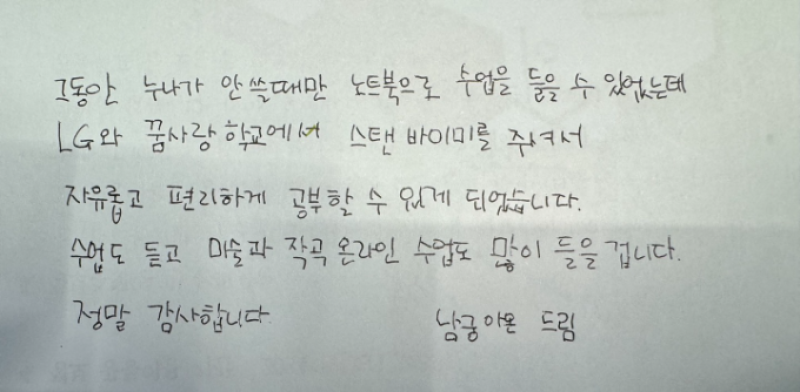 그동안 누나가 안 쓸때만 노트북으로 수업을 들을 수 있었는데
LG와 꿈사랑 학교에서 스탠 바이미를 줘서
자유롭고 편리하게 공부할 수 있게 되었습니다.
수업도 듣고 미술과 작곡 온라인 수업도 많이 들을 겁니다.
정말 감사합니다 남궁아온 드림